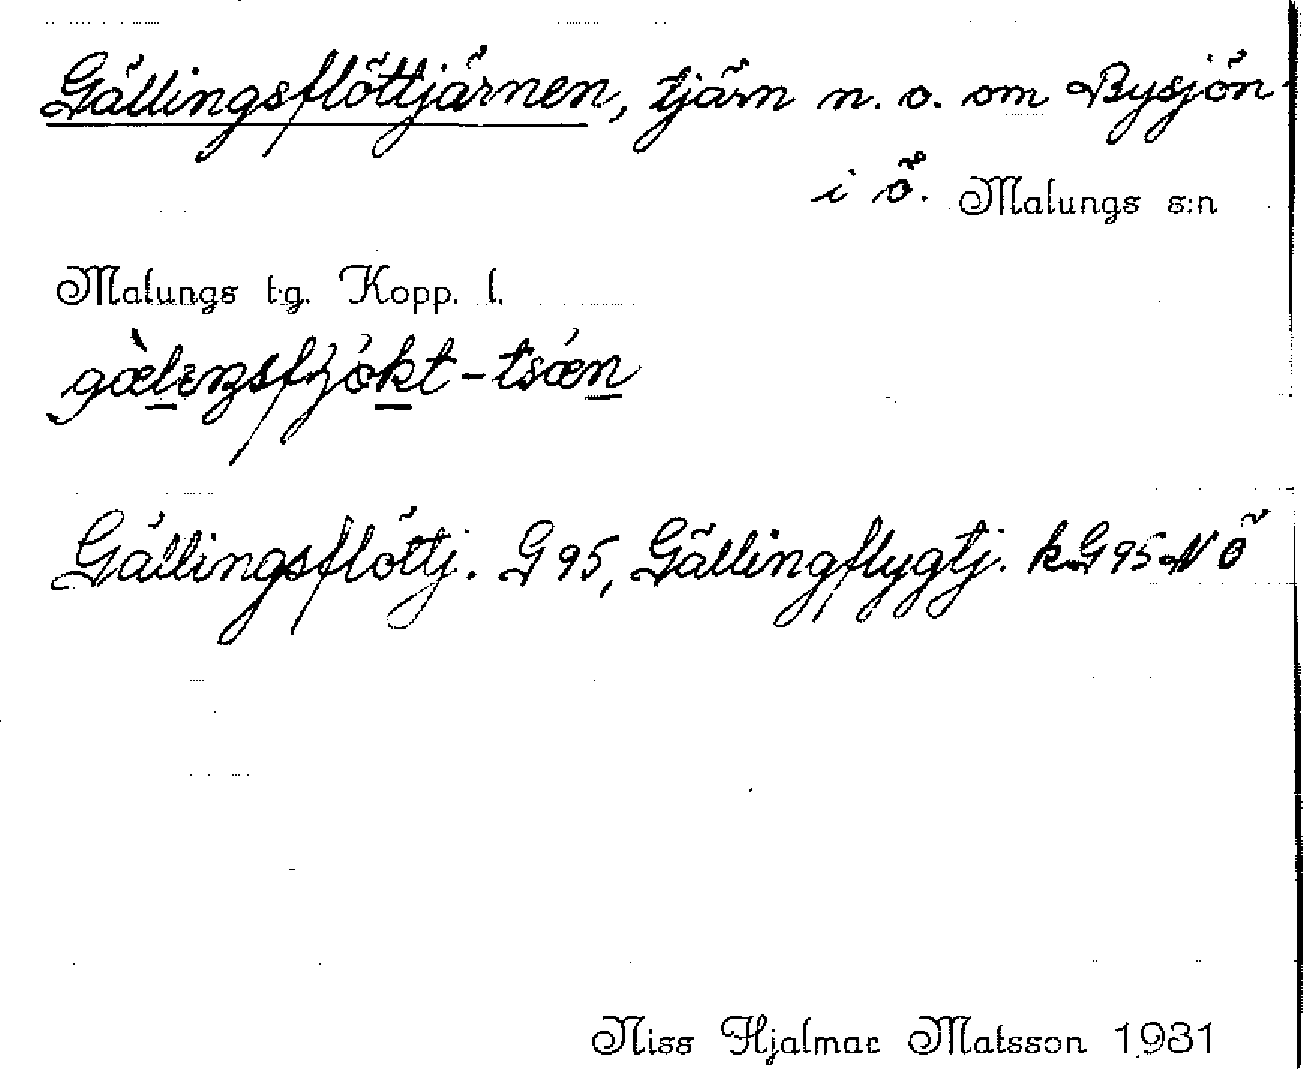 Gällingsflöttjärnen, tjärn n. o. om Bysjön
i ö. Malungs s:n
Malungs tg. Kopp. l.
gæ̀lɪŋsfɟókt-tsǽn
Gällingsflöttj. G 95, Gällingflygtj. kG 95 NÖ
Niss Hjalmar Matsson 1931